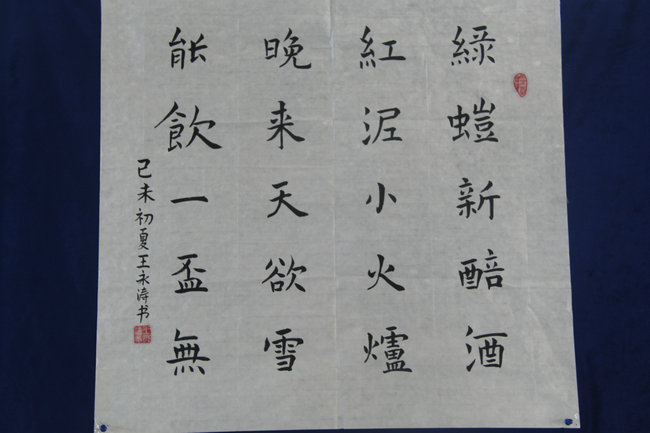 綠螘新醅酒
紅泥小火爐
晚来天欲雪
能飲一盃無
己未初夏王永涛书